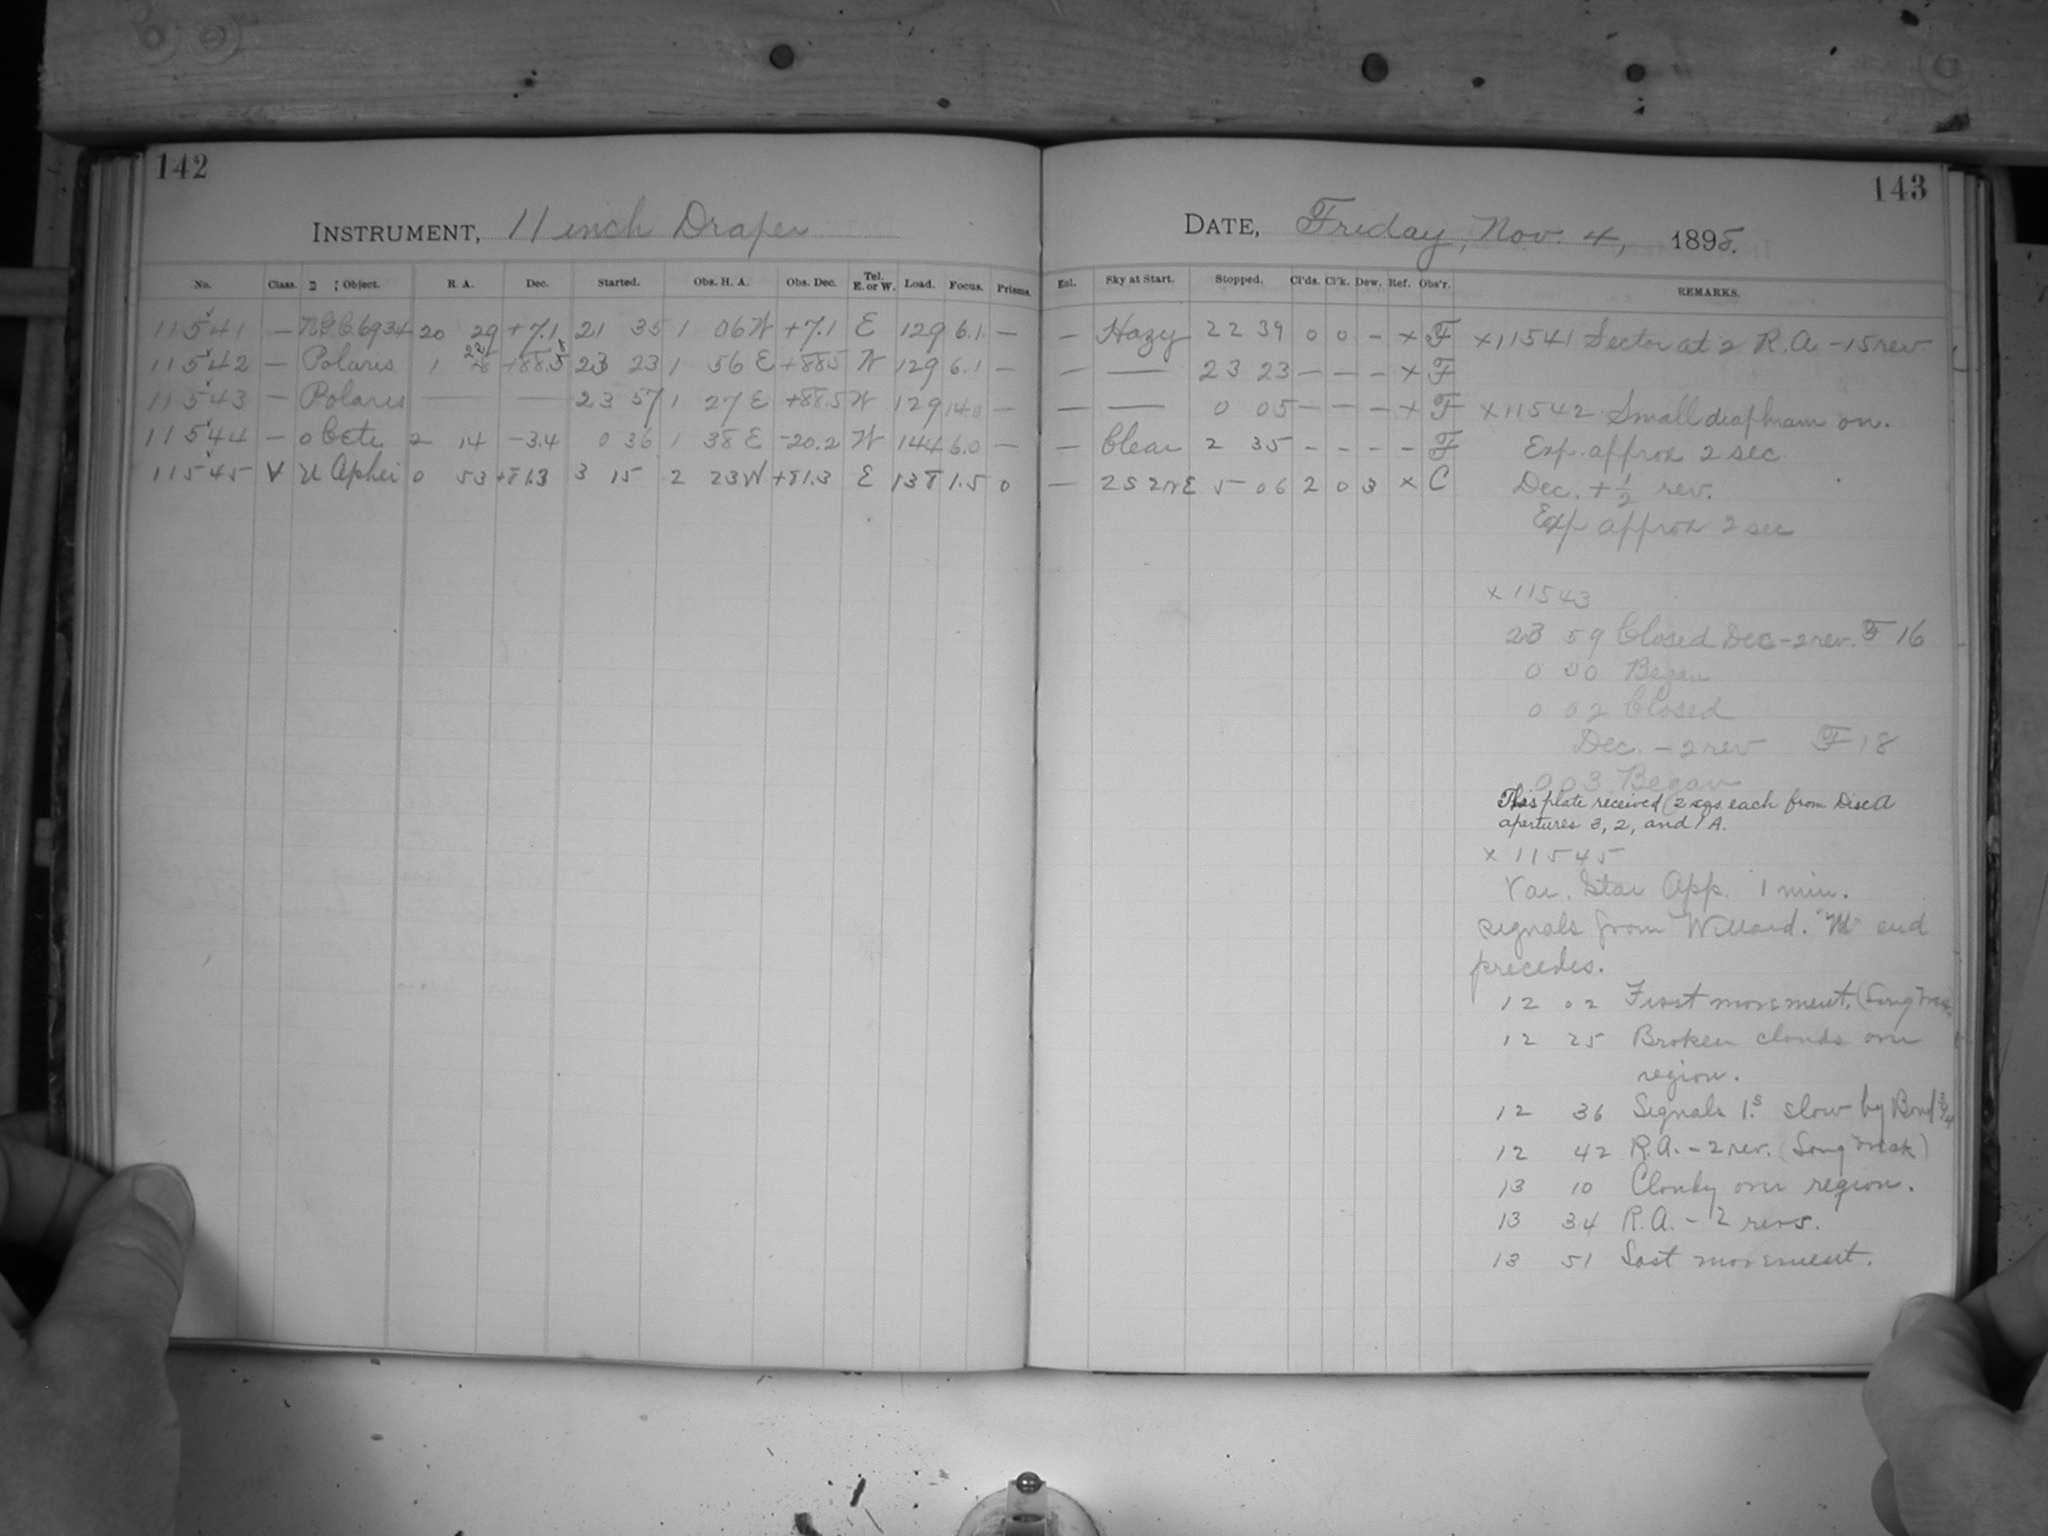 142
INSTRUMENT, 11 inch Draper
No. Class. Object. R. A. Dec. Started. Obs. H. A. Obs. Dec. Tel. E. or W. Load. Focus. Prisms.
11541 — N.G.C. 6934 20 29 +7.1 21 35 1 06 W +7.1 E 129 6.1 —
11542 — Polaris 1 22 +88.8 23 23 1 56 E +88.5 W 129 6.1 —
11543 — Polaris — — 23 57 1 27 E +88.5 W 129 14.0 —
11544 — o Ceti 2 14 -3.4 0 36 1 38 E -20.2 W 144 6.0 —
11545 V U Cephei 0 53 +81.3 3 15 2 23 W +81.3 E 138 1.5 0
143
DATE, Friday, Nov. 4, 1898.
Enl. Sky at Start. Stopped. Cl'ds. Cl'k. Dew. Ref. Obs'r. REMARKS.
— Hazy 22 39 0 0 - x F
— — 23 23 — — - x F
— — 0 05 — — - x F
— Clear 2 35 - - - - F
— 2S 2NE 5 06 2 0 3 x C
x 11541 Sector at 2 R.A. -15 rev.
x 11542 Small diaphram on.
Exp. approx 2 sec
Dec. + 1/2 rev.
Exp approx 2 sec
x 11543
23 59 Closed Dec -2 rev. F 16
0 00 Began
0 02 Closed
Dec. - 2 rev F 18
0 03 Began
This plate received 2 sqs. each from Disc A
apertures 3, 2, and 1 A.
x 11545
Var. Star App. 1 min.
signals from Willard. end
precedes.
12 02 First movement.
12 25 Broken clouds over
region.
12 36 Signals 1.s slow by Bond 394
12 42 R.A. - 2 rev.
13 10 Cloudy over region.
13 34 R.A. - 2 revs.
13 51 Last movement.